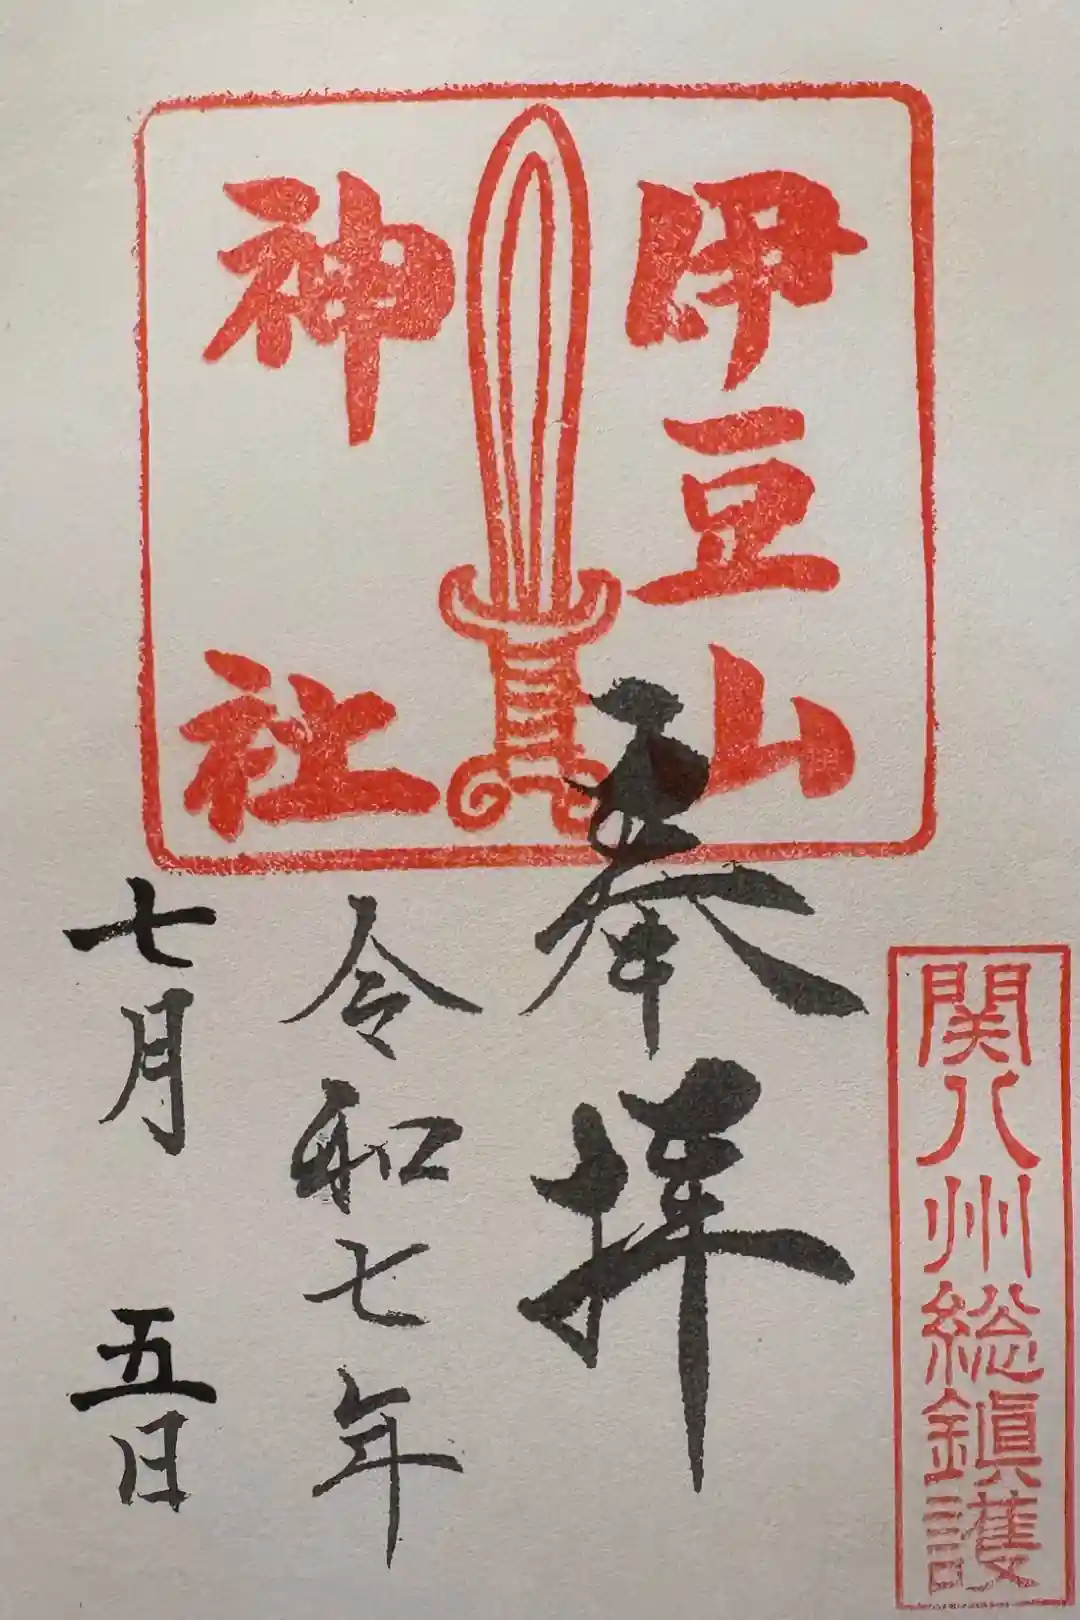 関八州総鎮護
伊豆山
神社
奉拝
令和七年
七月五日